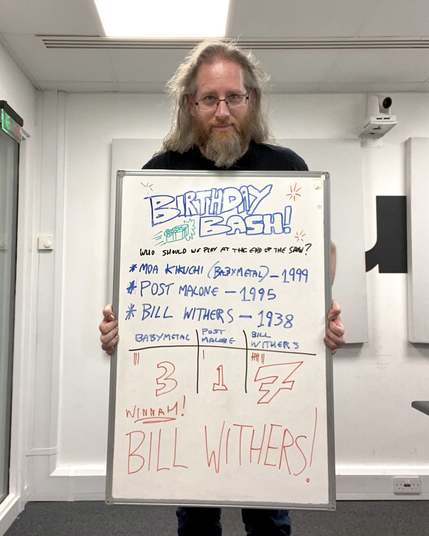 BIRTHDAY
BASH!
WHO SHOULD WE PLAY AT THE END OF THE SHOW?
* MOA KIKUCHI (BABYMETAL) – 1999
* POST MALONE – 1995
* BILL WITHERS – 1938
BABYMETAL POST MALONE BILL WITHERS
3 1 7
WINNAH!
BILL WITHERS!